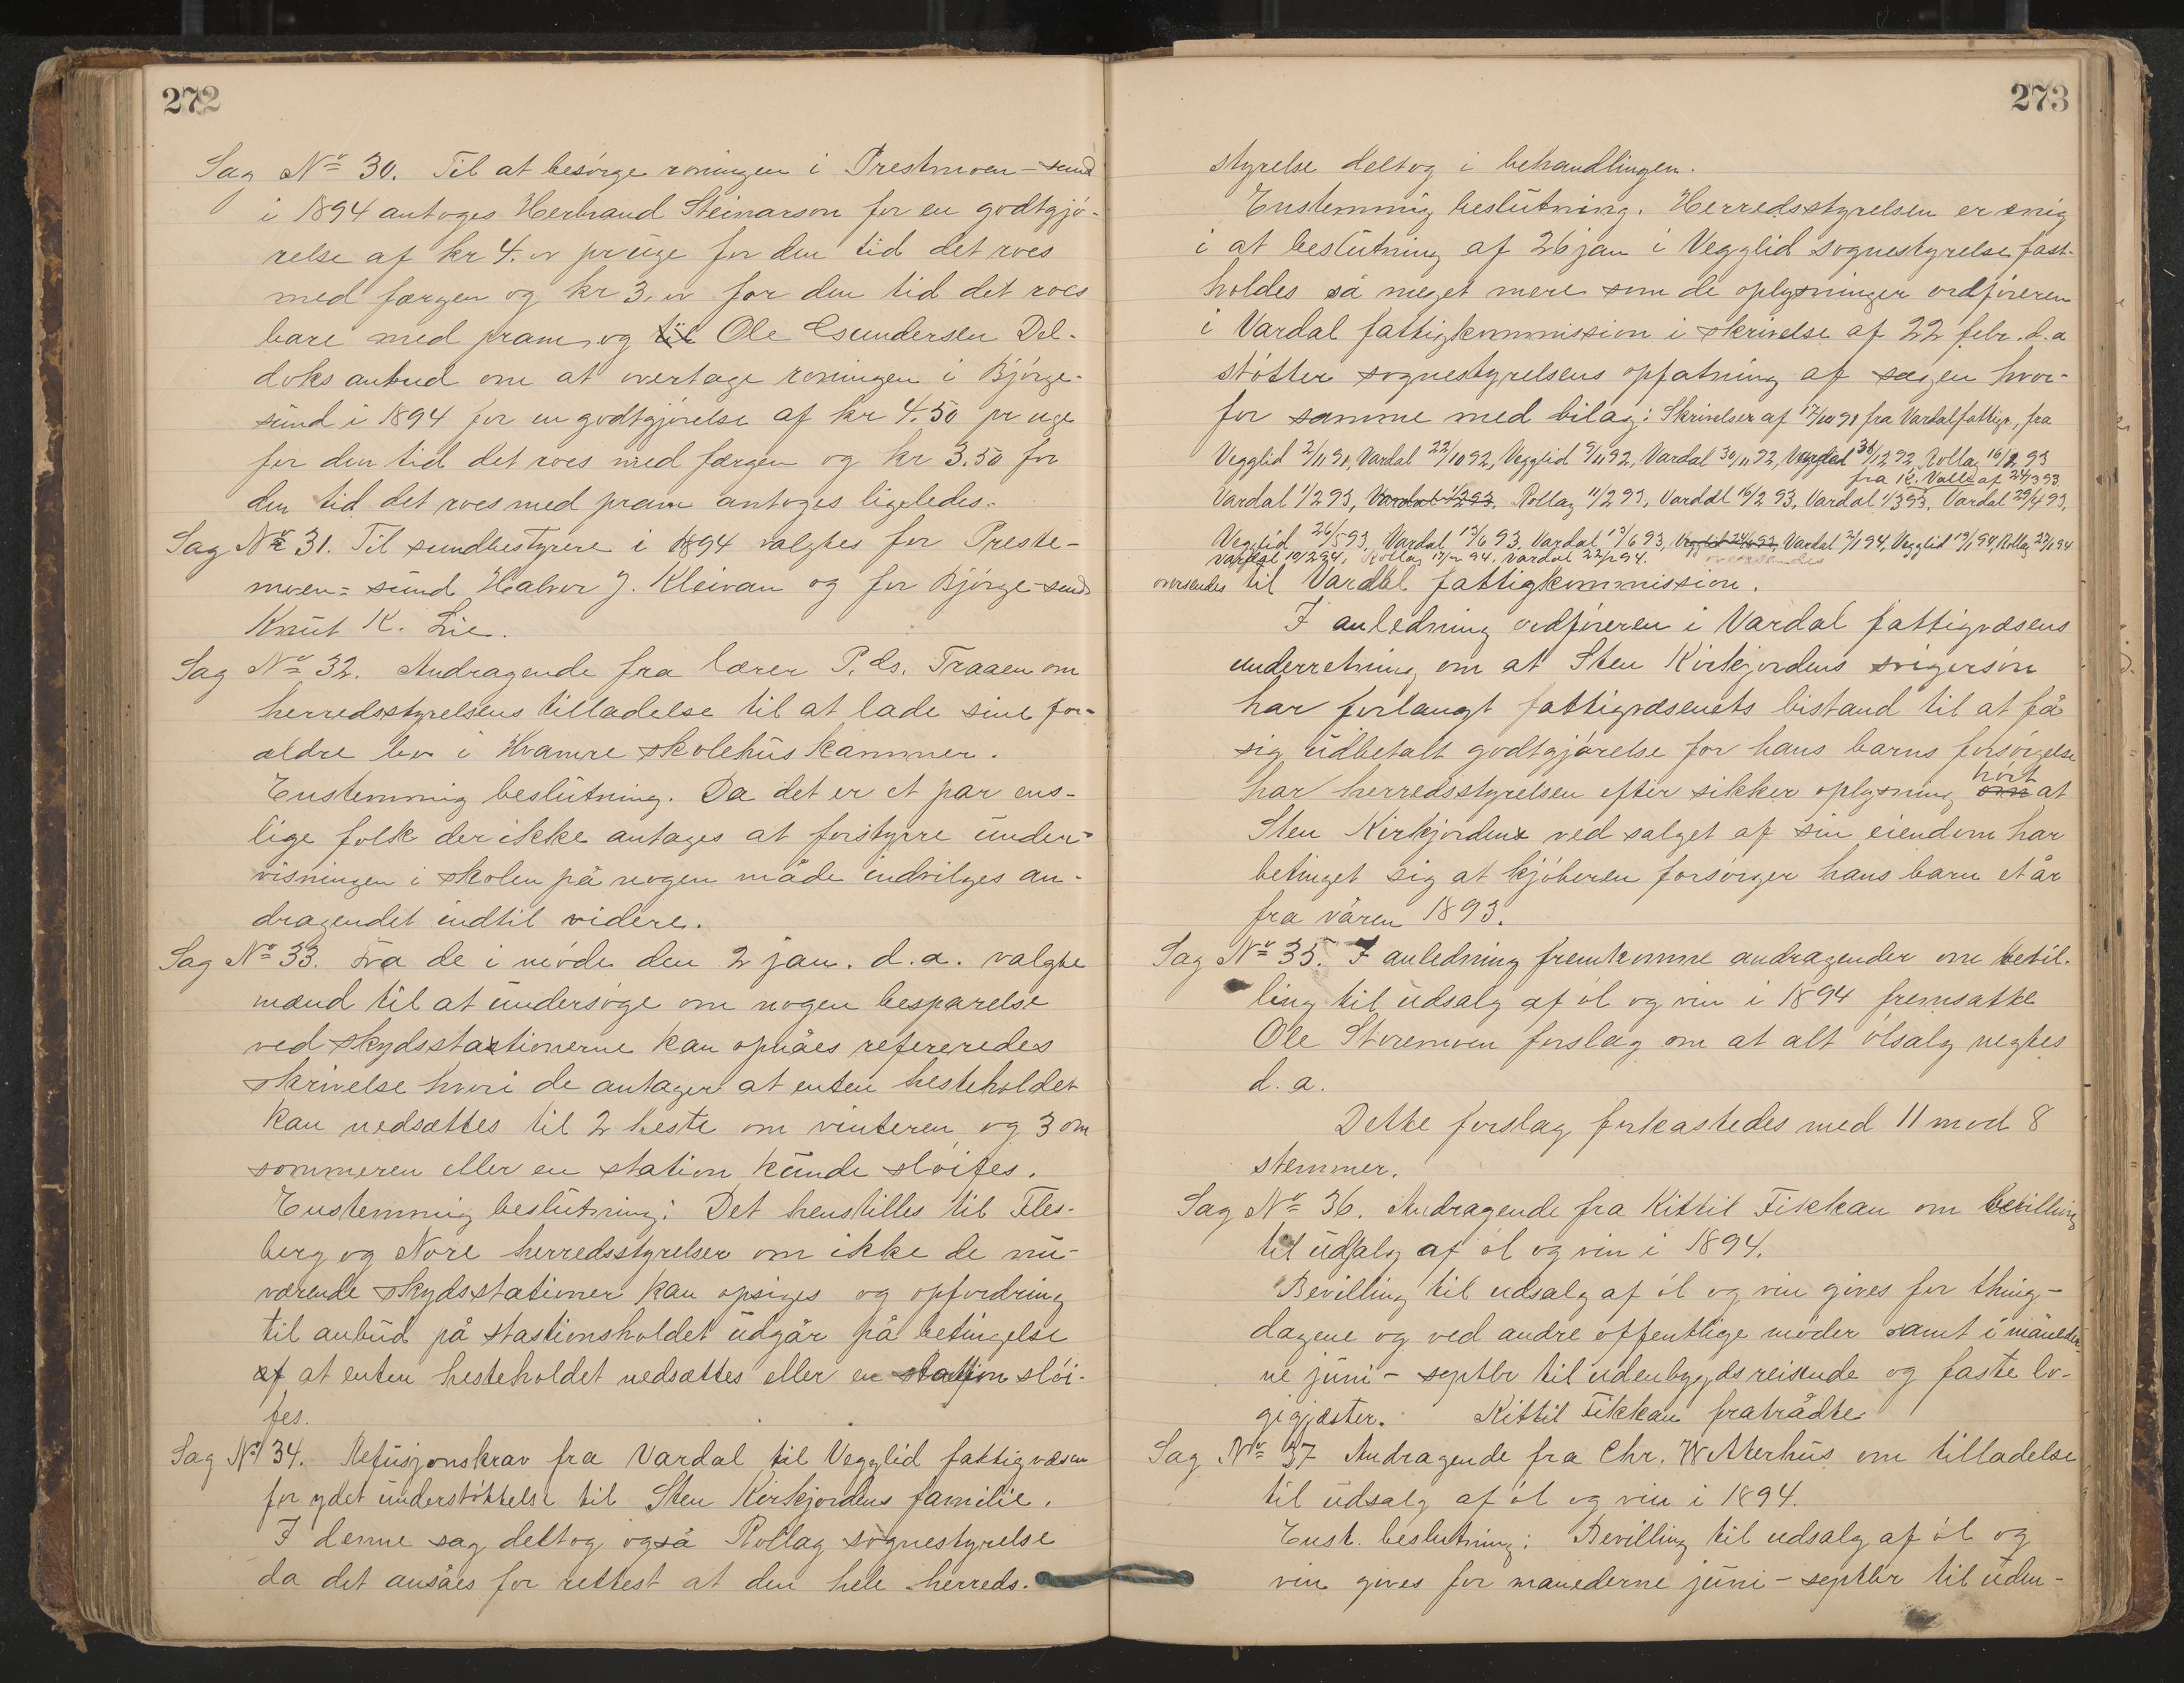 272
Sag No 30. Til at besørge roningen i Prestmoen-sund
i 1894 antoges Herbrand Steinarson for en godtgjø-
relse af kr 4.00 pr uge for den tid det roes
med færgen og kr 3.00 for den tid det roes
bare med pram, og til Ole Gundersen Del-
doks anbud om at overtage roningen i Bjørge-
sund i 1894 for en godtgjørelse af kr 4.50 pr uge
for den tid det roes med færgen og kr 3.50 for
den tid det roes med pram antoges ligeledes.
Sag No 31. Til sundbestyrere i 1894 valgtes for Preste-
moen-sund Halvor J. Kleivan og for Bjørge-sund
Knut K. Lie.
Sag No 32. Andragende fra lærer P. Es. Traaen om
herredsstyrelsens tilladelse til at lade sine for-
ældre bo i Hvamre skolehus kammer.
Enstemmig beslutning. Da det er et par ens-
lige folk der ikke antages at forstyrre under-
visningen i skolen på nogen måde indvilges an-
dragendet indtil videre.
Sag No 33. Fra de i møde den 2 jan. d.a. valgte
mænd til at undersøge om nogen besparelse
ved skydsstastionerne kan opnåes refereredes
skrivelse hvori de antager at enten hesteholdet
kan nedsættes til 2 heste om vinteren og 3 om
sommeren eller en station kunde sløifes.
Enstemmig beslutning: Det henstilles til Fles-
berg og Nore herredsstyrelser om ikke de nu-
værende skydsstationer kan opsiges og opfordring
til anbud på stastionsholdet udgår på betingelse
af at enten hesteholdet nedsættes eller en station sløi-
fes.
Sag No 34. Refusjonskrav fra Vardal til Vegglid fattigvæsen
for ydet understøttelse til Sten Kirkjordens familie.
I denne sag deltog også Rollag sognestyrelse
da det ansåes for rettest at den hele herreds-
273
styrelse deltog i behandlingen.
Enstemmig beslutning. Herredsstyrelsen er enig
i at beslutning af 26 jan i Vegglid sognestyrelse fast-
holdes så meget mere som de oplysninger ordføreren
i Vardal fattigkommission i skrivelse af 22 febr. d.a
støtter sognestyrelsens opfatning af sagen hvor-
for samme med bilag: Skrivelser af 17/10 91 fra Vardal fattigv., fra
Vegglid 2/11 91, Vardal 22/10 92, Vegglid 9/11 92, Vardal 30/11 92, Vegglid 31/12 92, Rollag 16/2 93
fra K. Valle af 24/3 93
Vardal 1/2 93, Vardal 1/2 93, Rollag 11/2 93, Vardal 16/2 93, Vardal 1/3 93, Vardal 29/4 93,
Vegglid 26/5 93, Vardal 13/6 93, Vardal 13/6 93, Vegglid 24/6 93, Vardal 2/1 94, Vegglid 19/1 94, Rollag 27/1 94
Vardal 10/2 94, Rollag 17/2 94, Vardal 22/2 94.
oversendes til Vardal fattigkommission.
I anledning ordføreren i Vardal fattigvæsens
underretning om at Sten Kirkjordens svigersøn
har forlangt fattigvæsenets bistand til at få
sig udbetalt godtgjørelse for hans barns forsørgelse
hørt
har herredsstyrelsen efter sikker oplysning om at
Sten Kirkjorden ved salget af sin eiendom har
betinget sig at kjøberen forsørger hans barn et år
fra våren 1893.
Sag No 35. I anledning fremkomne andragender om bevil-
ling til udsalg af øl og vin i 1894 fremsatte
Ole Storemoen forslag om at alt ølsalg negtes
d.a.
Dette forslag forkastedes med 11 mod 8
stemmer.
Sag No 36. Andragende fra Kittil Fikkan om bevilling
til udsalg af øl og vin i 1894.
Bevilling til udsalg af øl og vin gives for thing-
dagene og ved andre offentlige møder samt i måneder-
ne juni - septbr til udenbygds reisende og faste lo-
gigjæster. Kittil Fikkan fratrådte
Sag No 37 Andragende fra Chr. W Aterhus om tilladelse
til udsalg af øl og vin i 1894.
Enst. beslutning: Bevilling til udsalg af øl og
vin gives for manederne juni - septbr til uden-